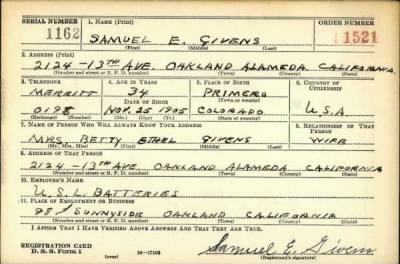 SERIAL NUMBER 1. NAME (Print) ORDER NUMBER
1162 SAMUEL E. GIVENS 11521
(First) (Middle) (Last)
2. ADDRESS (Print)
2124 - 13TH AVE. OAKLAND ALAMEDA. CALIFORNIA
(Number and street or R. F. D. number) (Town) (County) (State)
3. TELEPHONE 4. AGE IN YEARS 5. PLACE OF BIRTH 6. COUNTRY OF CITIZENSHIP
MERRITT 34 PRIMERO
DATE OF BIRTH (Town or county)
0198 NOV. 25 1905 COLORADO U.S.A
(Exchange) (Number) (Mo.) (Day) (Yr.) (State or country)
7. NAME OF PERSON WHO WILL ALWAYS KNOW YOUR ADDRESS 8. RELATIONSHIP OF THAT PERSON
MRS. BETTY ETHEL GIVENS WIFE
(Mr., Mrs., Miss) (First) (Middle) (Last)
9. ADDRESS OF THAT PERSON
2124 - 13TH AVE. OAKLAND ALAMEDA CALIFORNIA
(Number and street or R. F. D. number) (Town) (County) (State)
10. EMPLOYER'S NAME
U.S.L. BATTERIES
11. PLACE OF EMPLOYMENT OR BUSINESS
SUNNYSIDE OAKLAND CALIFORNIA
(Number and street or R. F. D. number) (Town) (County) (State)
I AFFIRM THAT I HAVE VERIFIED ABOVE ANSWERS AND THAT THEY ARE TRUE.
REGISTRATION CARD
D. S. S. Form 1 (over) 16-17105 Samuel E. Givens
(Registrant's signature)